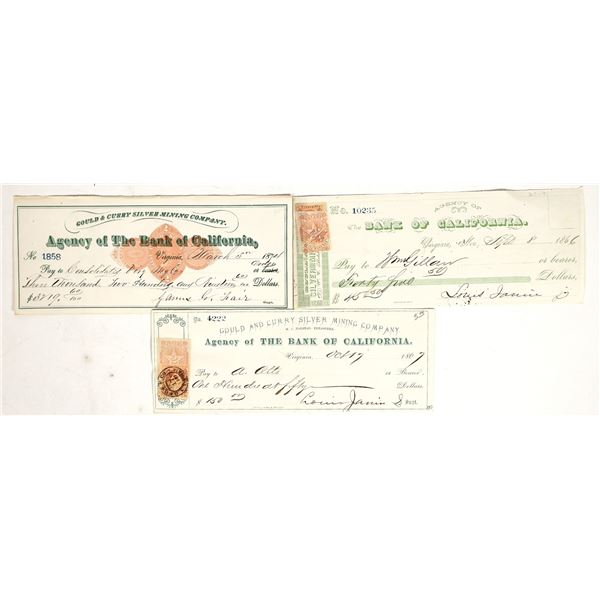 GOULD & CURRY SILVER MINING COMPANY.
Agency of The Bank of California,
No 1858 Virginia, March 5th 187
Pay to Consolidated or order
or bearer
Three Thousand Two Hundred and Nineteen Dollars.
$3219
James G. Fair
No. 10235
AGENCY OF
The BANK OF CALIFORNIA.
Sept 8 1866
Pay to Wm Gillan or bearer,
Forty five 50 Dollars,
$ 45 50 Louis Janin
No. 4222
GOULD AND CURRY SILVER MINING COMPANY
Agency of THE BANK OF CALIFORNIA.
Virginia, Oct 17 1867
Pay to A. Otto or Bearer
One Hundred & fifty Dollars,
$ 150 00 Louis Janin Supt.